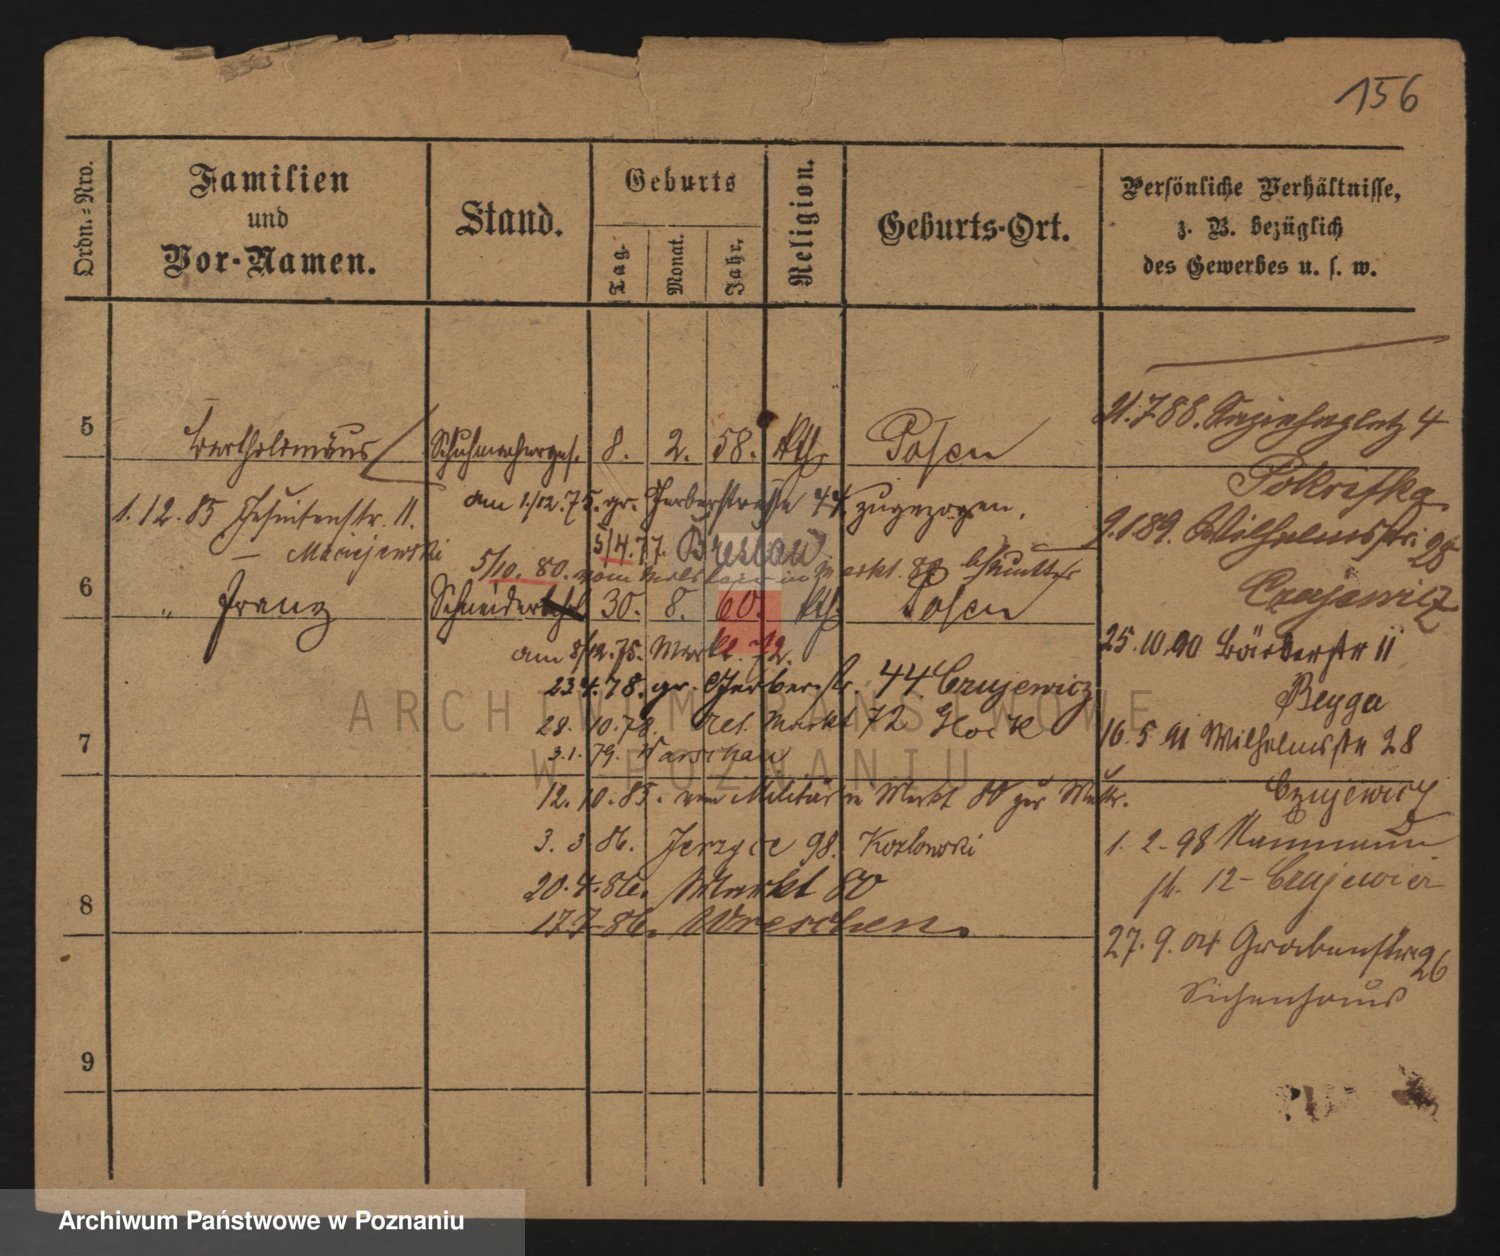 156
Ordn.-Nro.
Familien
und
Vor-Namen.
Stand.
Geburts
Tag.
Monat.
Jahr.
Religion.
Geburts-Ort.
Persönliche Verhältnisse,
z. B. bezüglich
des Gewerbes u. s. w.
5
Bartholomäus
Schuhmacherges.
8.
2.
58.
kth.
Posen
am 1/12.75. gr. Gerberstrasse 44 zugezogen.
1.12.85 Jesuitenstr. 11.
– Maciejewski
5/4.77. Breslau
5/10. 80. vom in Markt. 80
6
" Franz
Schneider
30.
8.
60.
kth.
Posen
am 8/12.75. Markt 72.
23.4.78. gr. Gerberstr. 44. Czujewicz
28.10.78. ret. Markt 72 Glock
7
3.1.79. Warschau
12.10.85. vom Militär n Markt 80 zur Mutter.
3.3.86. Jerzyce 98. Kozlowski
8
20.4.86. Markt 80
17.7.86. Wreschen.
9
11.7.88. 4
9.1.89. Wilhelmsstr. 28
Czujewicz
25.10.90 Bäckerstr 11
Beyga
16.5.91 Wilhelmsstr 28
Czujewicz
1.2.98 Naumann
str. 12 – Czujewicz
27.9.04 Grabenstr. 26
Siechenhaus
ARCHIWUM PAŃSTWOWE
W POZNANIU
Archiwum Państwowe w Poznaniu